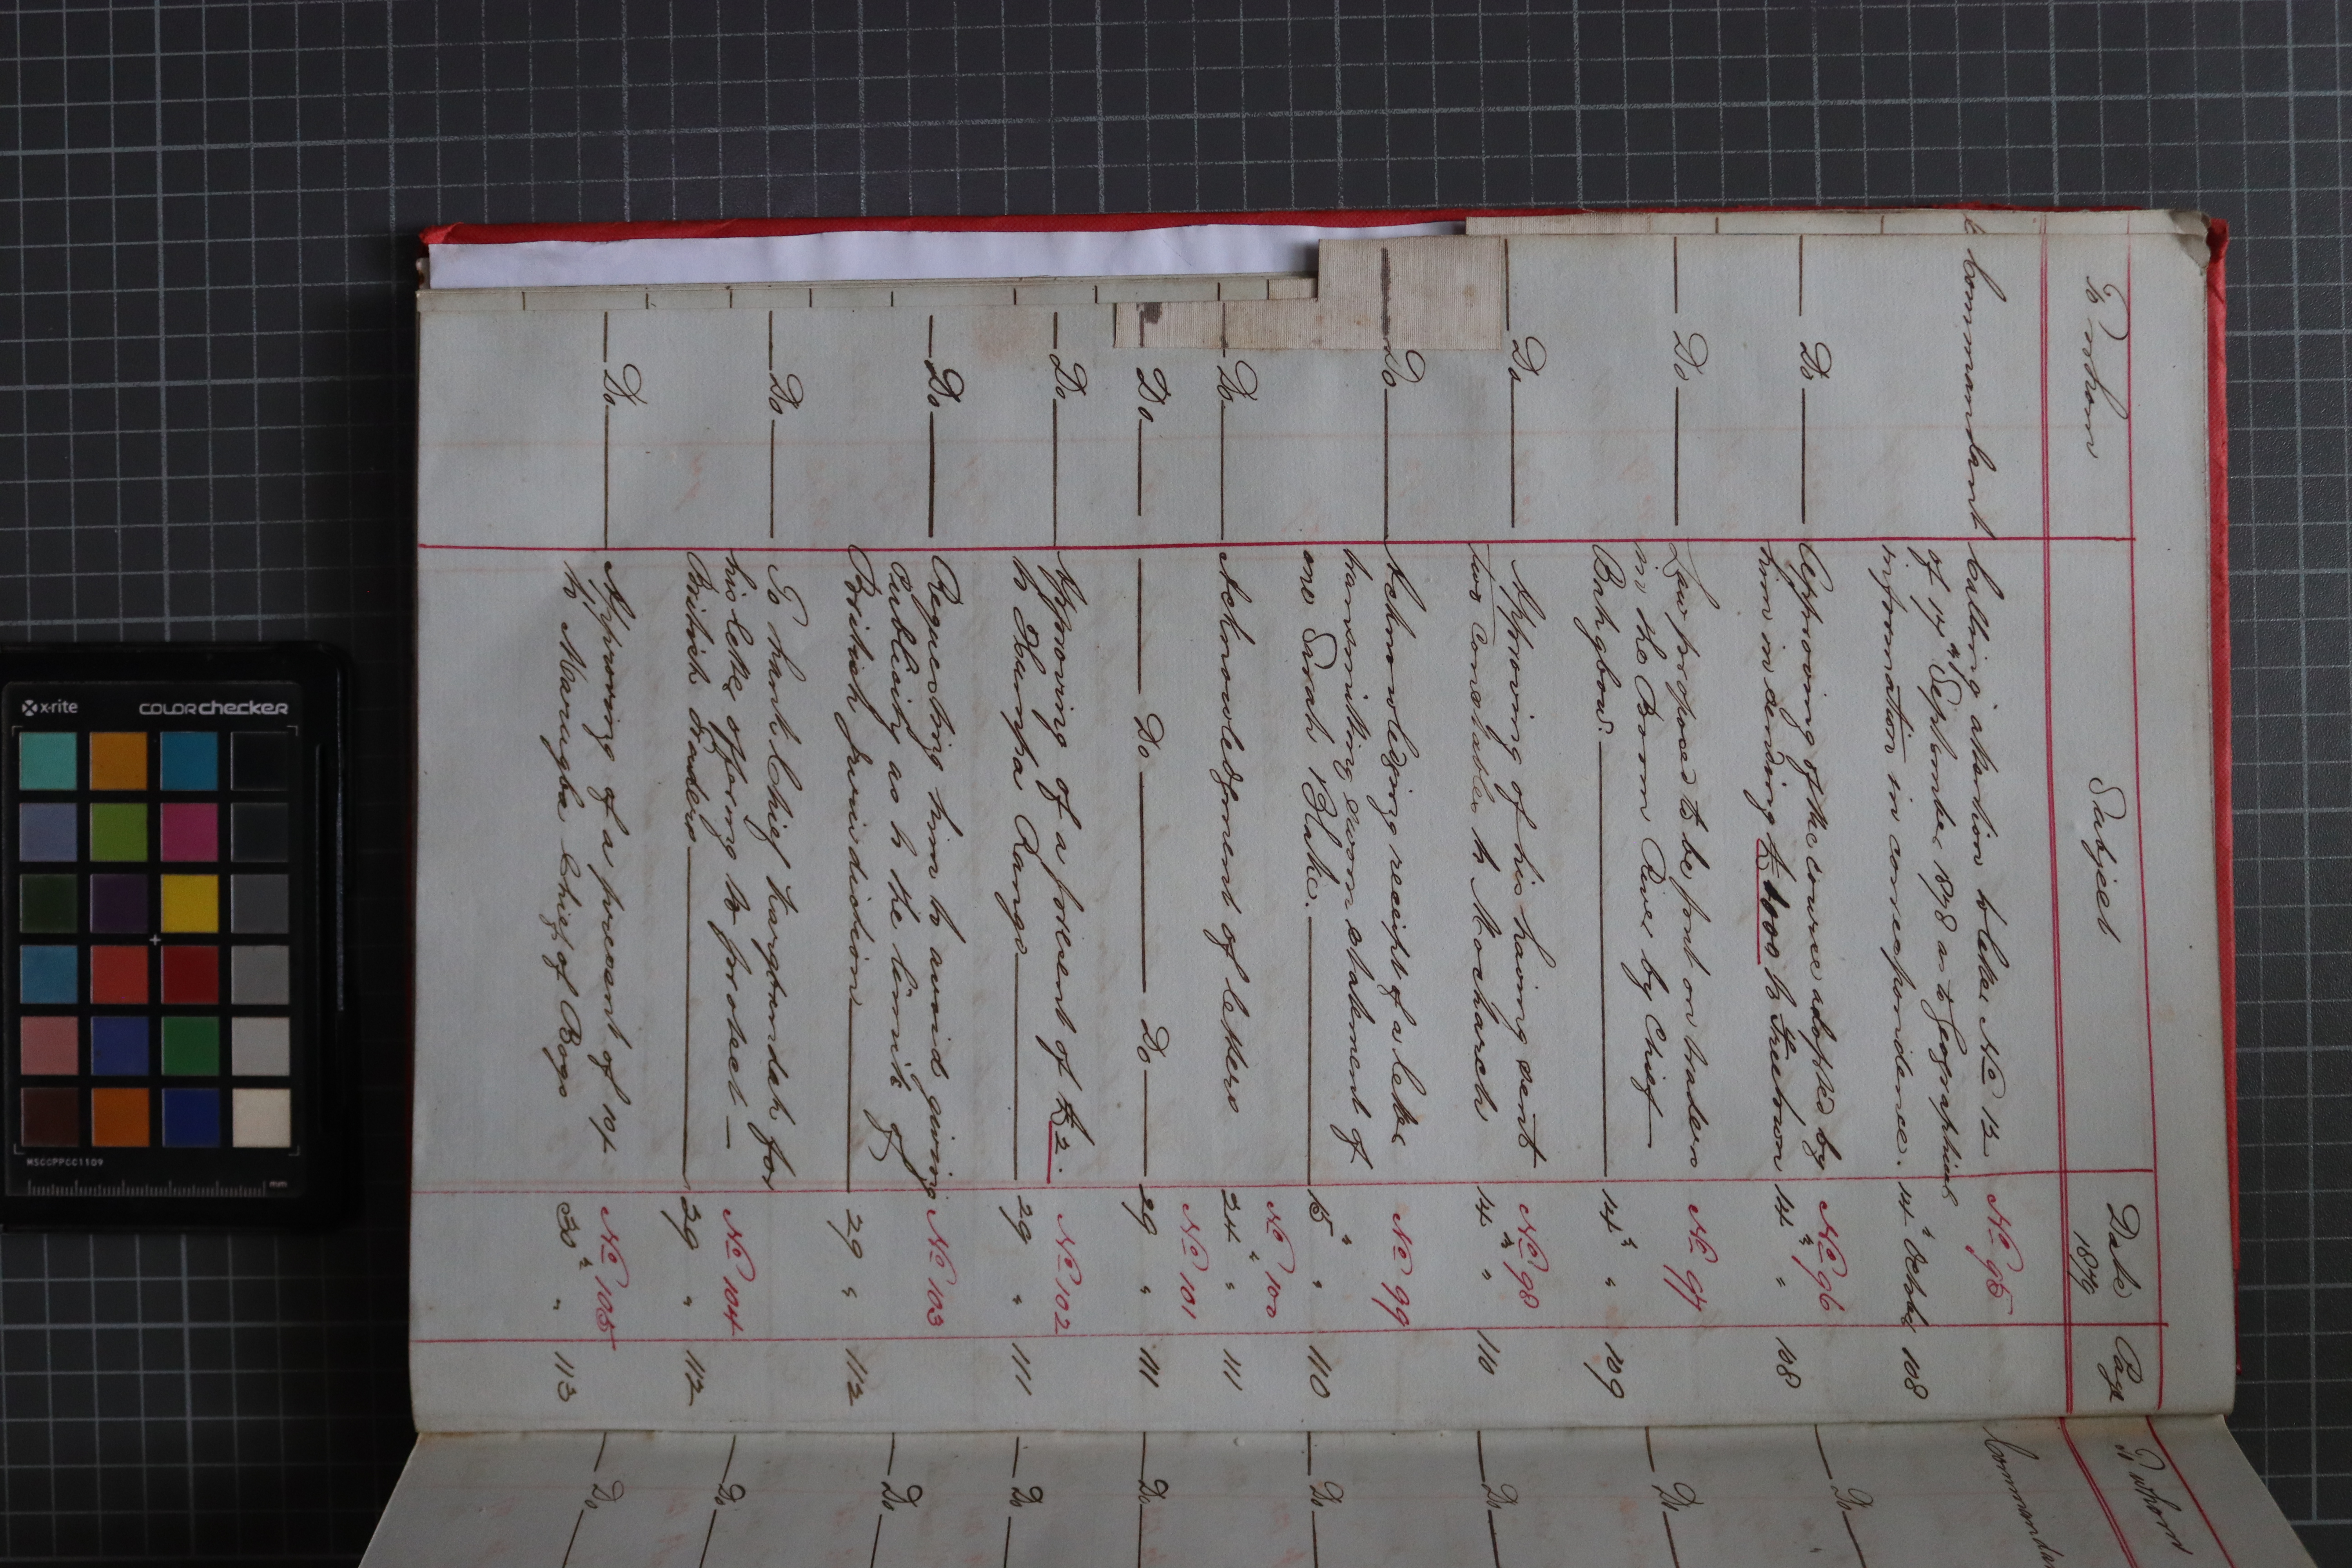 To whom Subject Date 1879 Page
No 95
Commandant Calling attention to letter No 12
of 17th September 1878 as to Geographical
information in correspondence. 14th October 108
No 96
Do Approving of the course adopted by
him in sending £1000 to Freetown 14th " 108
No 97
Do Law proposed to be put on traders
in the Boom River by Chief
Bahgbow. 14th " 109
No 98
Do Approving of his having sent
two Constables to Mocharch 14th " 110
No 99
Do Acknowledging receipt of a letter
transmitting sworn statement of
one Sarah Blake. 15 " " 110
No 100
Do Acknowledgment of letters 24 " " 111
No 101
Do Do Do 29 " 111
No 102
Do Approving of a present of £2.
to Kango 29 " 111
No 103
Do Requesting him to avoid giving
Publicity as to the limits of
British Jurisdiction 29 " 112
No 104
Do To thank Chief for
his letter offering to protect
British Traders 29 " 112
No 105
Do Approving of a present of 10/-
to Chief of Bogo 30th " 113
To whom
Do
Do
Do
Do
Do
Do
Do
Do
Do
x-rite colorchecker
MSCCPPCC1109
mm